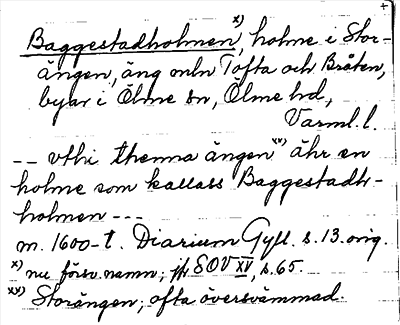 Baggestadholmen x), holme i Stor-
ängen, äng mln Tofta och Bråten,
byar i Ölme sn, Ölme hd,
Värml. l.
-- vthi thenna ängen xx) ähr en
holme som kallass Baggestadh-
holmen ---
m. 1600-t. Diarium Gyll. s. 13. orig.
x) nu försv. namn; jfr SOV XV, s. 65.
xx) Storängen; ofta översvämmad.